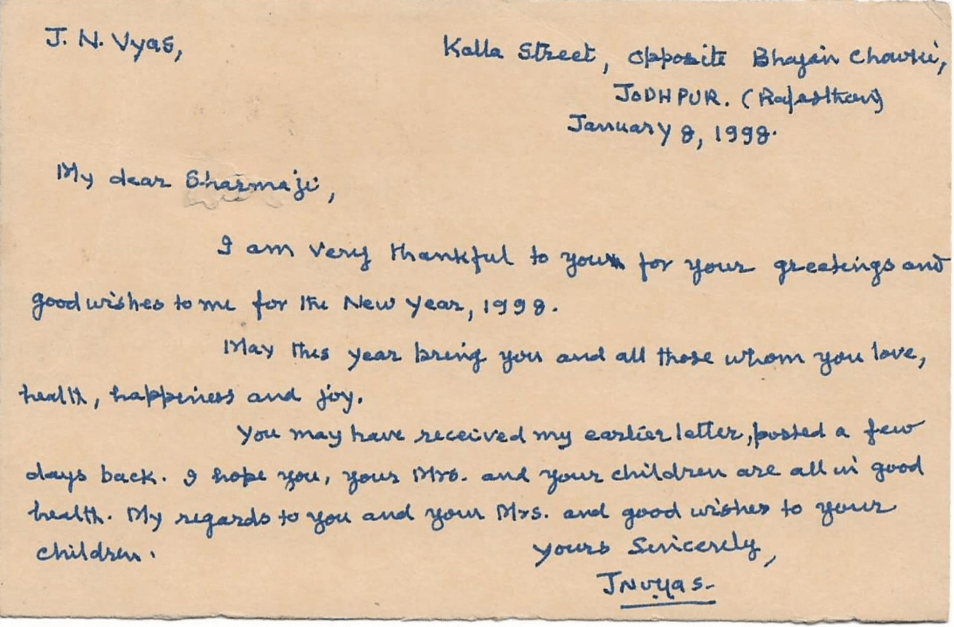 J. N. Vyas,
Kalla Street, opposite Bhajan Chowki,
JODHPUR. (Rajasthan)
January 8, 1998.
My dear Sharmaji,
I am very thankful to you for your greetings and
good wishes to me for the New Year, 1998.
May this year bring you and all those whom you love,
health, happiness and joy.
You may have received my earlier letter, posted a few
days back. I hope you, your Mrs. and your children are all in good
health. My regards to you and your Mrs. and good wishes to your
children.
Yours Sincerely,
JNVyas.